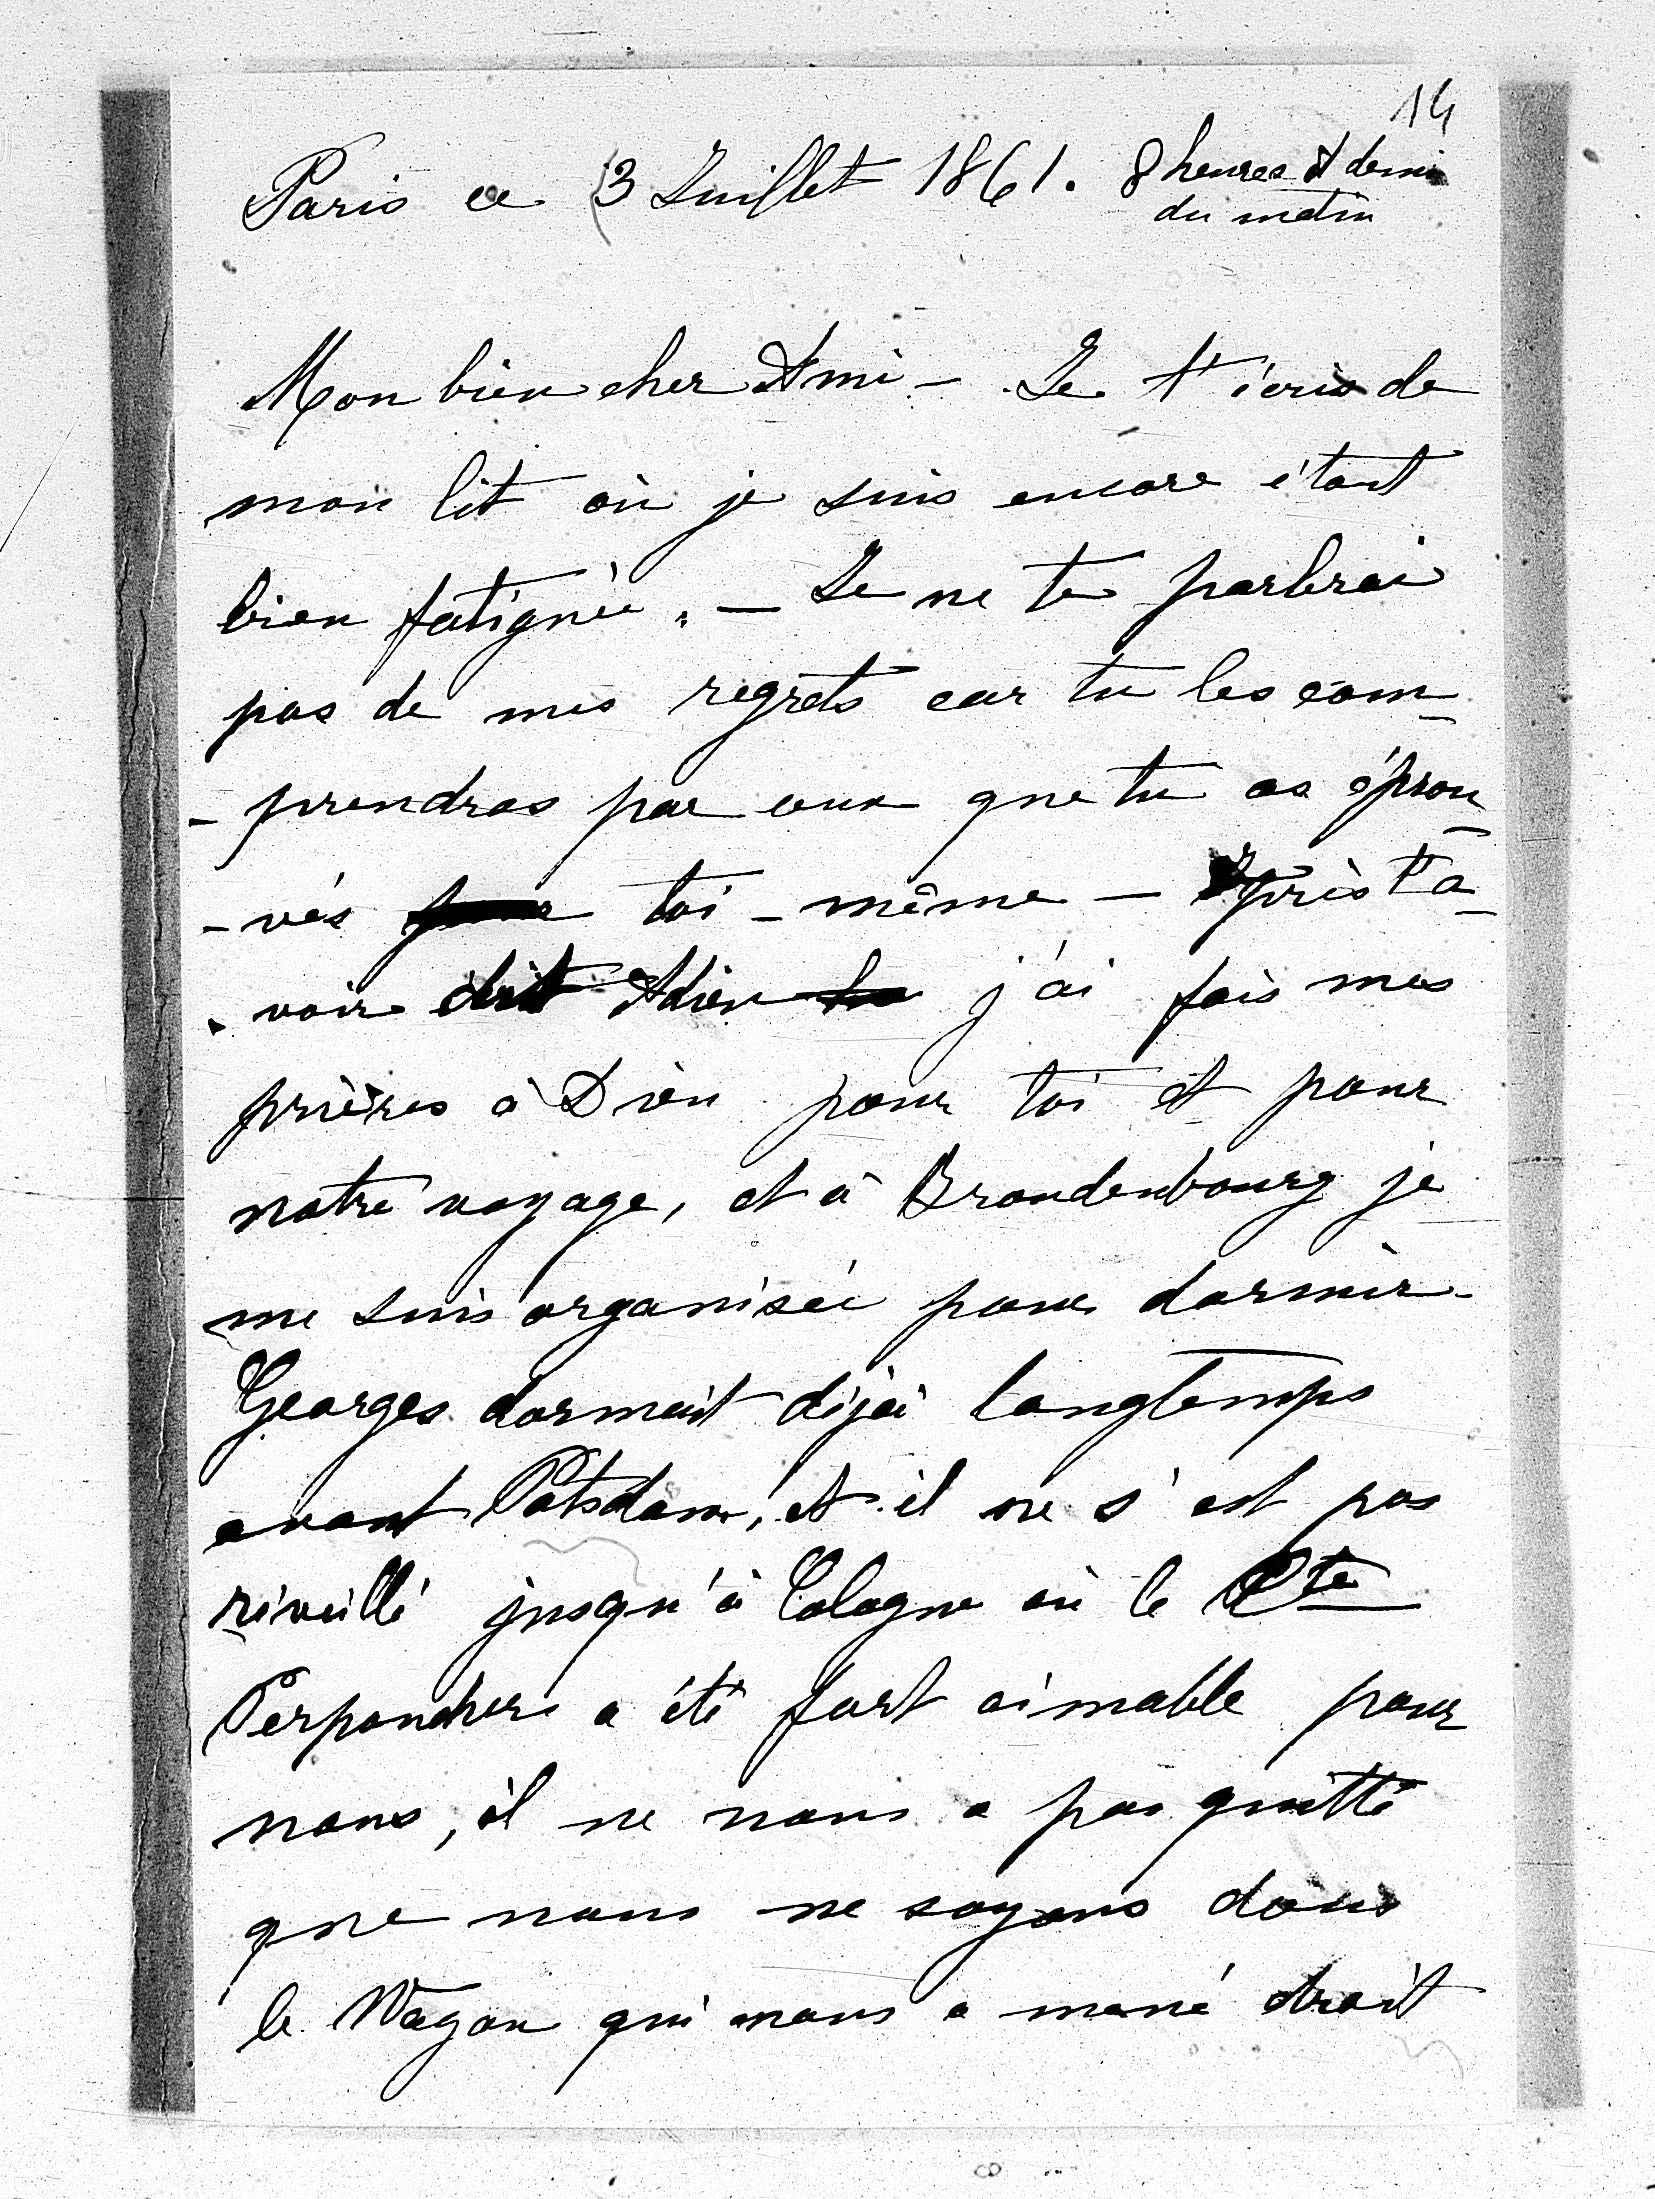 14
Paris ce 3 Juillet 1861. 8 heures et demi
du matin
Mon bien cher Ami – Je t'écris de
mon lit où je suis encore étant
bien fatiguée. — Je ne te parlerai
pas de mes regrets car tu les com-
-prendras par ceux que tu as éprou-
-vés toi-même — Après t'a-
-voir dit Adieu j'ai fais mes
prières à Dieu pour toi et pour
notre voyage, et à Brandenbourg je
me suis organisée pour dormir.
Georges dormait déjà longtemps
avant Potsdam, et il ne s'est pas
réveillé jusqu'à Cologne où le Cte
Perponcher a été fort aimable pour
nous, il ne nous a pas quitté
que nous ne soyons dans
le Wagon qui nous a mené droit